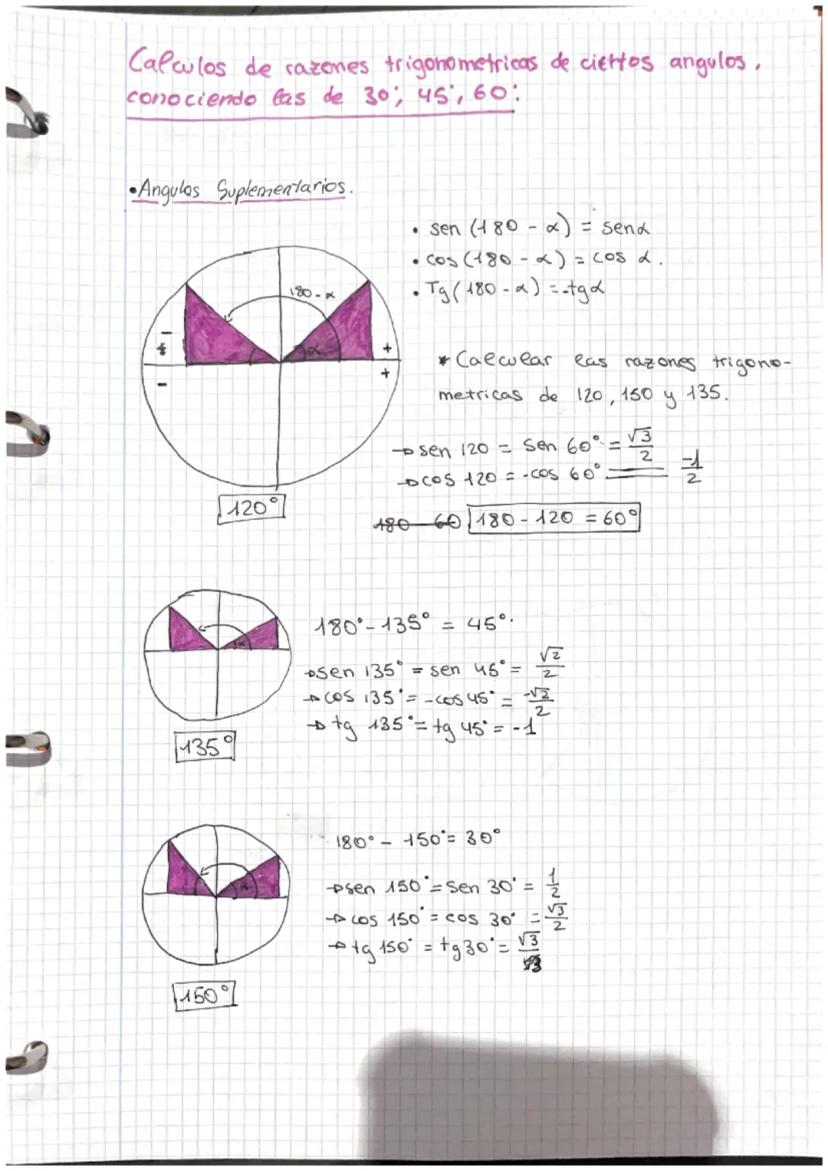 Calculos de razones trigonometricas de ciertos angulos,
conociendo las de 30°, 45°, 60°:
• Angulos Suplementarios.
• sen (180 - α) = senα
• cos (180 - α) = cos α.
• Tg (180 - α) = -tgα
180 - α
α
* Calcular las razones trigono-
metricas de 120, 150 y 135.
→ sen 120 = sen 60° = √3/2
→ cos 120 = -cos 60° = -1/2
120°
180 - 60 180 - 120 = 60°
180° - 135° = 45°.
→ sen 135° = sen 45° = √2/2
→ cos 135° = -cos 45° = -√2/2
→ tg 135° = tg 45° = -1
135°
180° - 150° = 30°
→ sen 150° = sen 30° = 1/2
→ cos 150° = cos 30° = √3/2
→ tg 150° = tg 30° = √3
150°